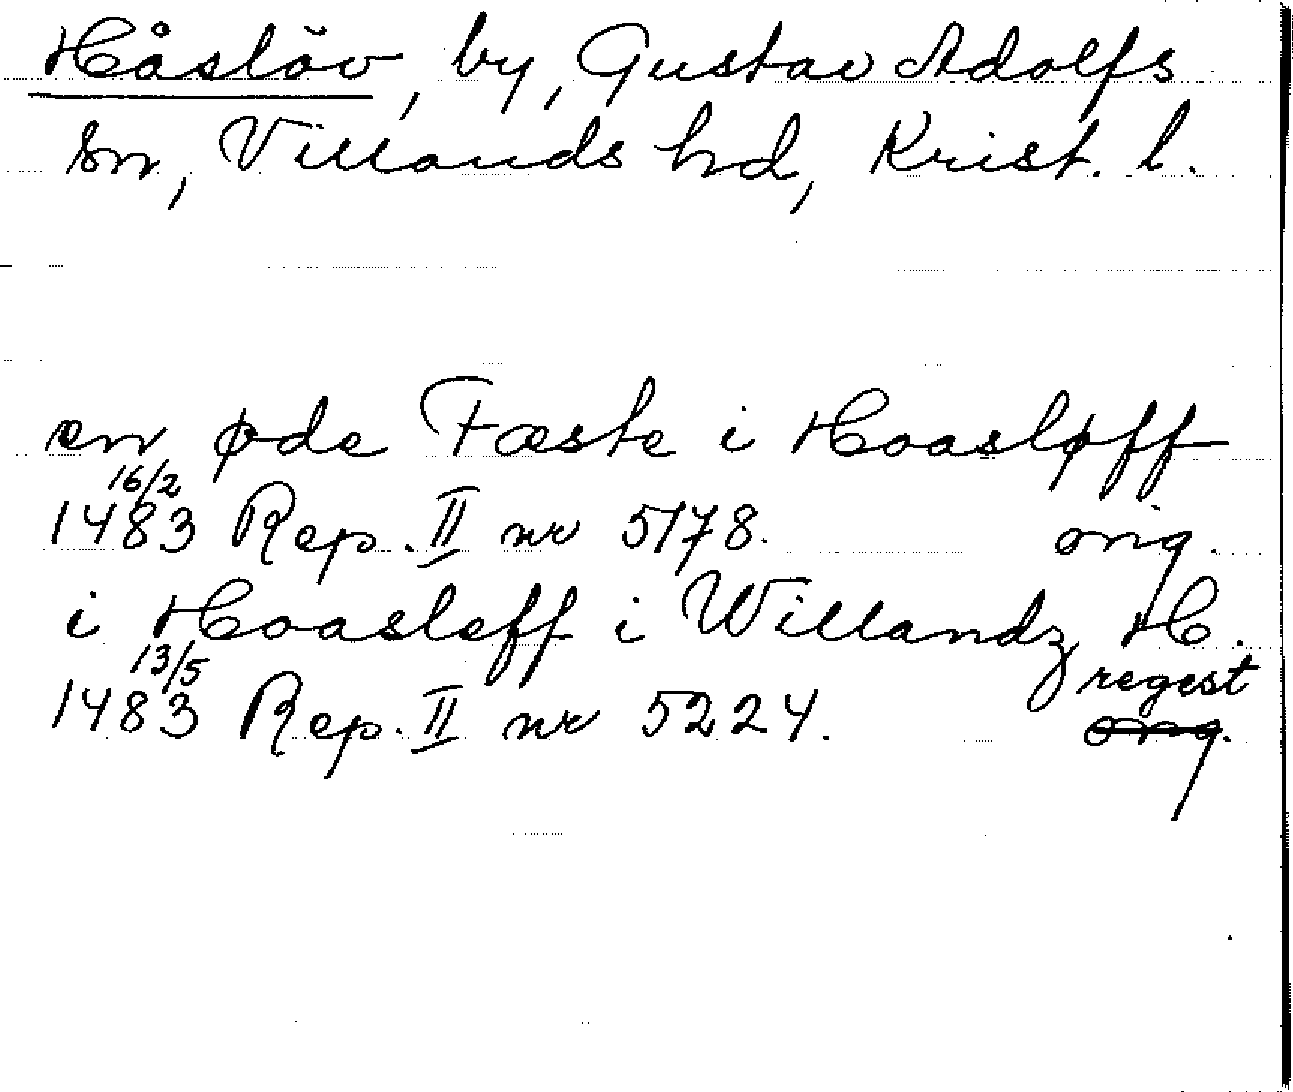 Håslöv, by, Gustav Adolfs
sn, Villands hd, Krist. l.
en øde Fæste i Hoasløff
16/2
1483 Rep. II nr 5178. orig.
i Hoasleff i Willandz H.
13/5 regest
1483 Rep. II nr 5224. orig.